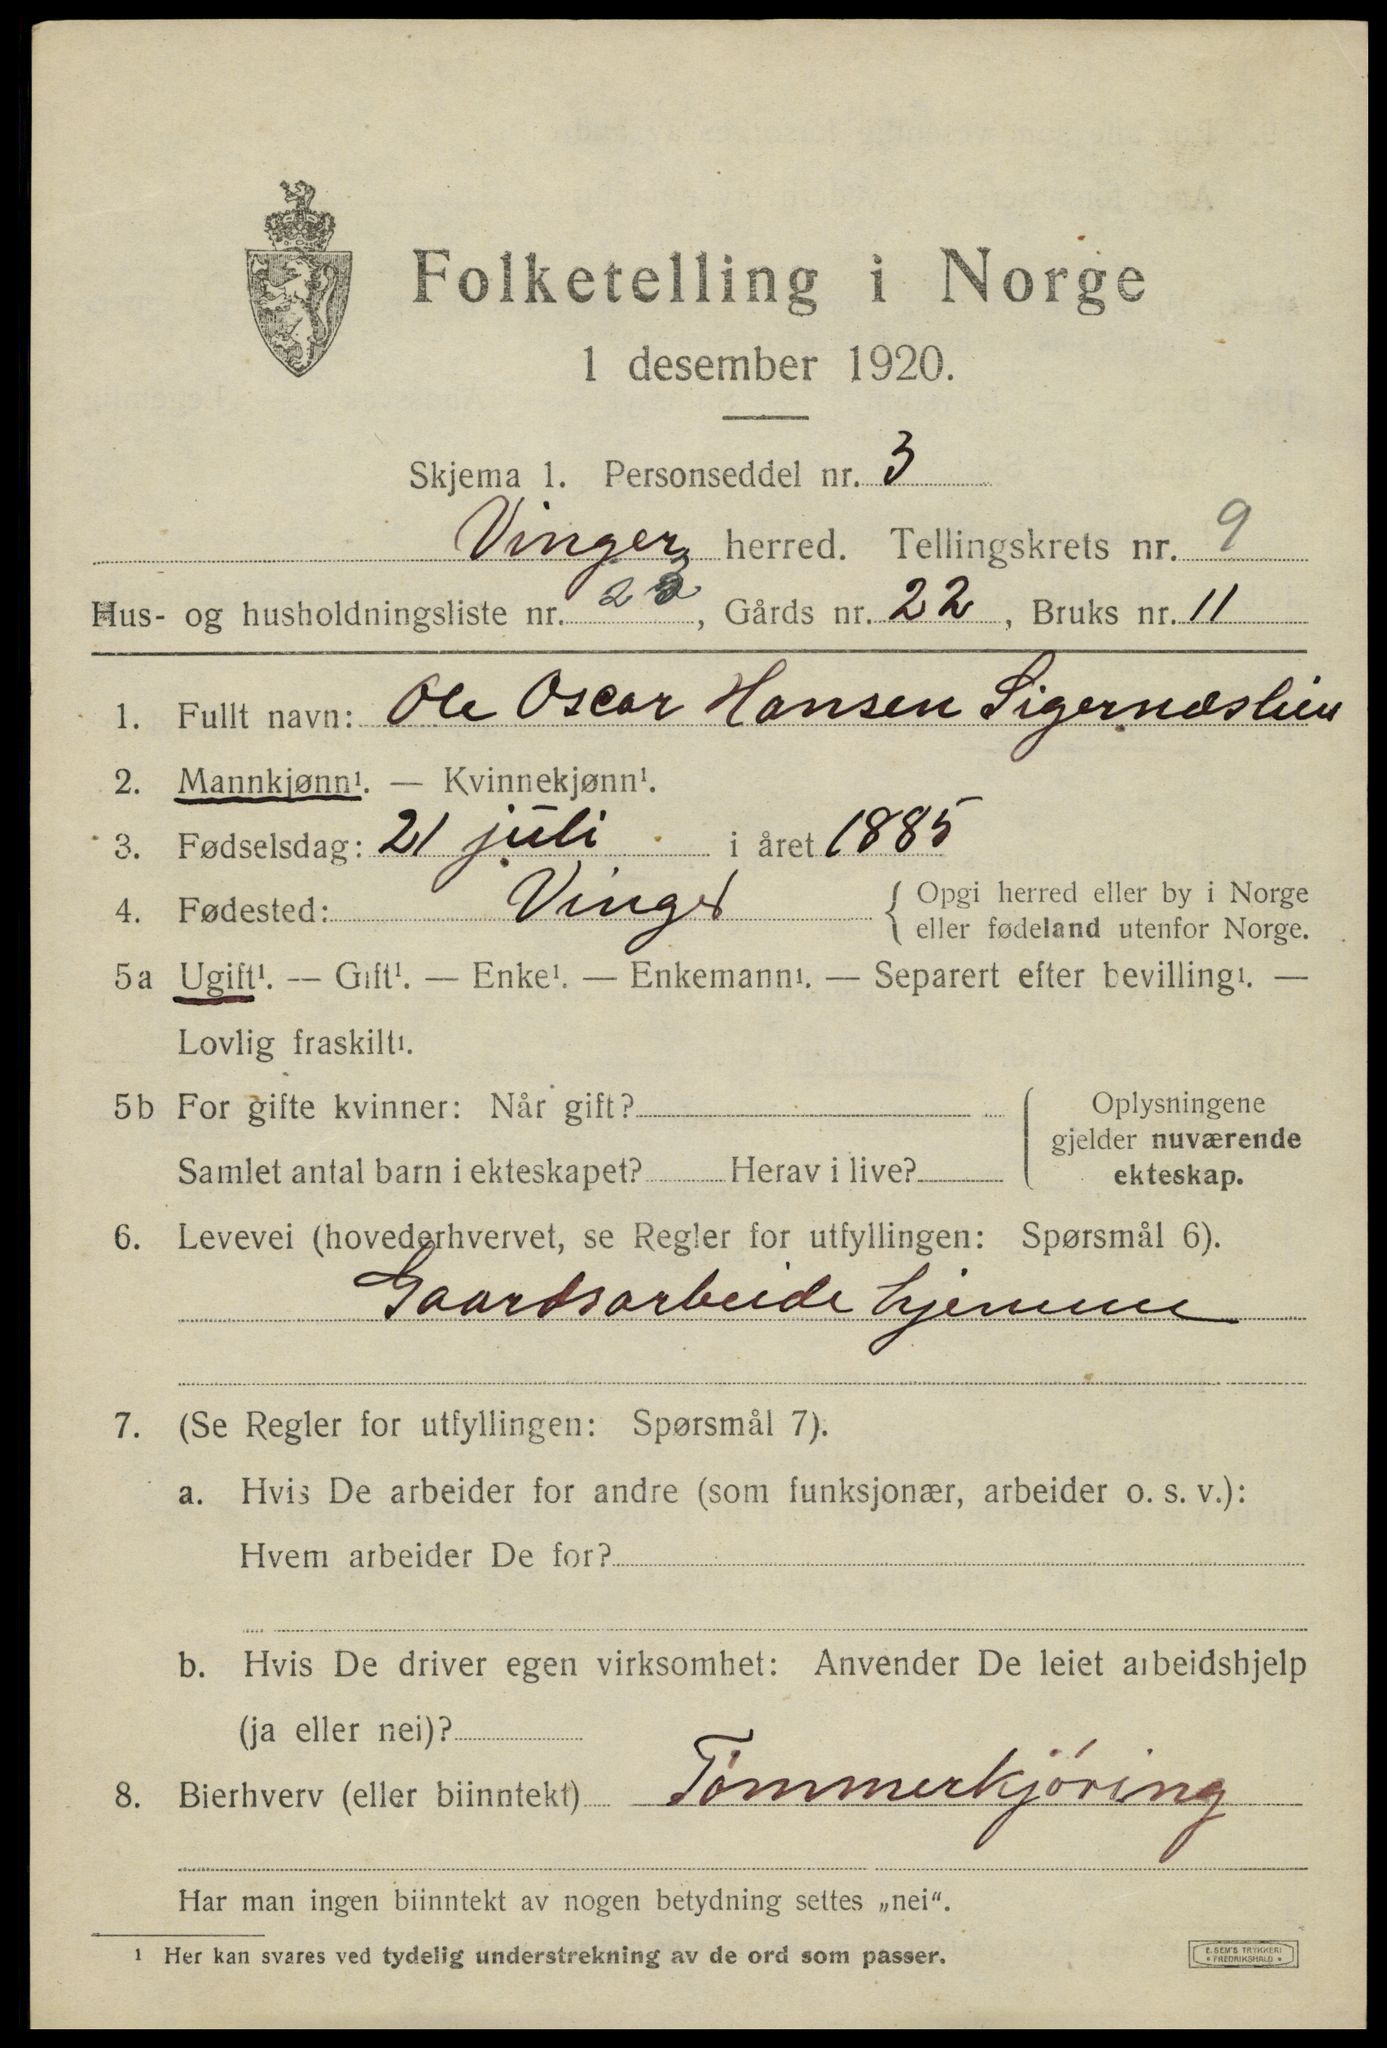 Folketelling i Norge
1 desember 1920.
Skjema 1. Personseddel nr. 3
Vinger herred. Tellingskrets nr. 9
Hus- og husholdningsliste nr. , Gårds nr. 22, Bruks nr. 11
1. Fullt navn: Ole Oscar Hansen Sigernæslien
2. Mannkjønn¹. — Kvinnekjønn¹.
3. Fødselsdag: 21 juli i året 1885
4. Fødested: Vinger { Opgi herred eller by i Norge
eller fødeland utenfor Norge.
5a Ugift¹. — Gift¹. — Enke¹. — Enkemann¹. — Separert efter bevilling¹. —
Lovlig fraskilt¹.
5b For gifte kvinner: Når gift?
Samlet antal barn i ekteskapet? Herav i live?
Oplysningene
gjelder nuværende
ekteskap.
6. Levevei (hovederhvervet, se Regler for utfyllingen: Spørsmål 6).
Gaardsarbeide hjemme
7. (Se Regler for utfyllingen: Spørsmål 7).
a. Hvis De arbeider for andre (som funksjonær, arbeider o. s. v.):
Hvem arbeider De for?
b. Hvis De driver egen virksomhet: Anvender De leiet arbeidshjelp
(ja eller nei)?
8. Bierhverv (eller biinntekt) Tömmerkjöring
Har man ingen biinntekt av nogen betydning settes „nei“.
¹ Her kan svares ved tydelig understrekning av de ord som passer.
E. SEM'S TRYKKERI
• FREDRIKSHALD •